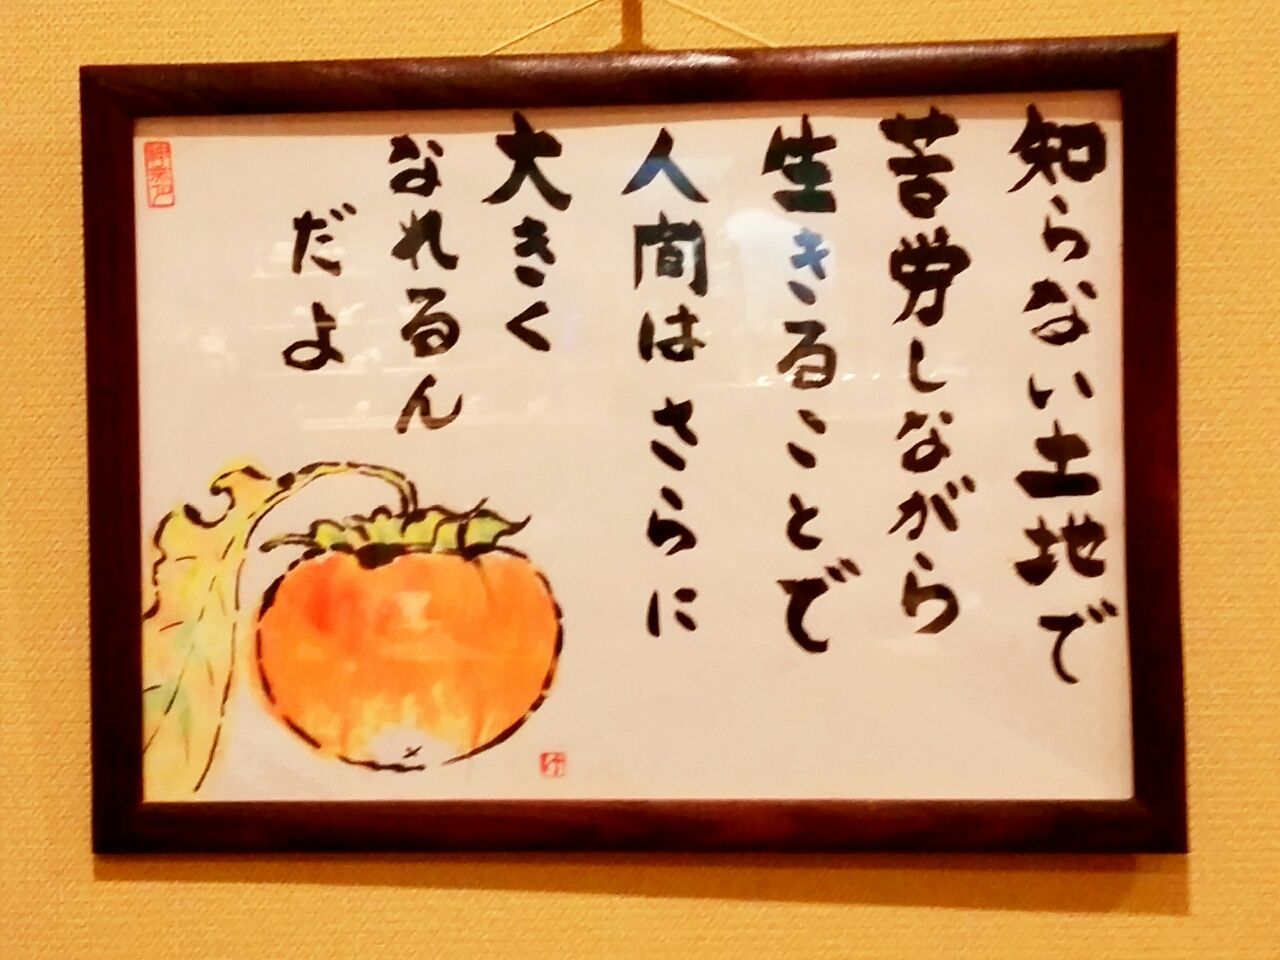 知らない土地で
苦労しながら
生きることで
人間はさらに
大きく
なれるん
だよ